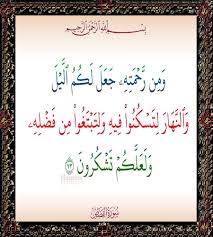 بِسْمِ اللَّهِ الرَّحْمَٰنِ الرَّحِيمِ
وَمِن رَّحْمَتِهِۦ جَعَلَ لَكُمُ ٱلَّيْلَ
وَٱلنَّهَارَ لِتَسْكُنُوا۟ فِيهِ وَلِتَبْتَغُوا۟ مِن فَضْلِهِۦ
وَلَعَلَّكُمْ تَشْكُرُونَ ٧٣
سُورَةُ القَصَصِ